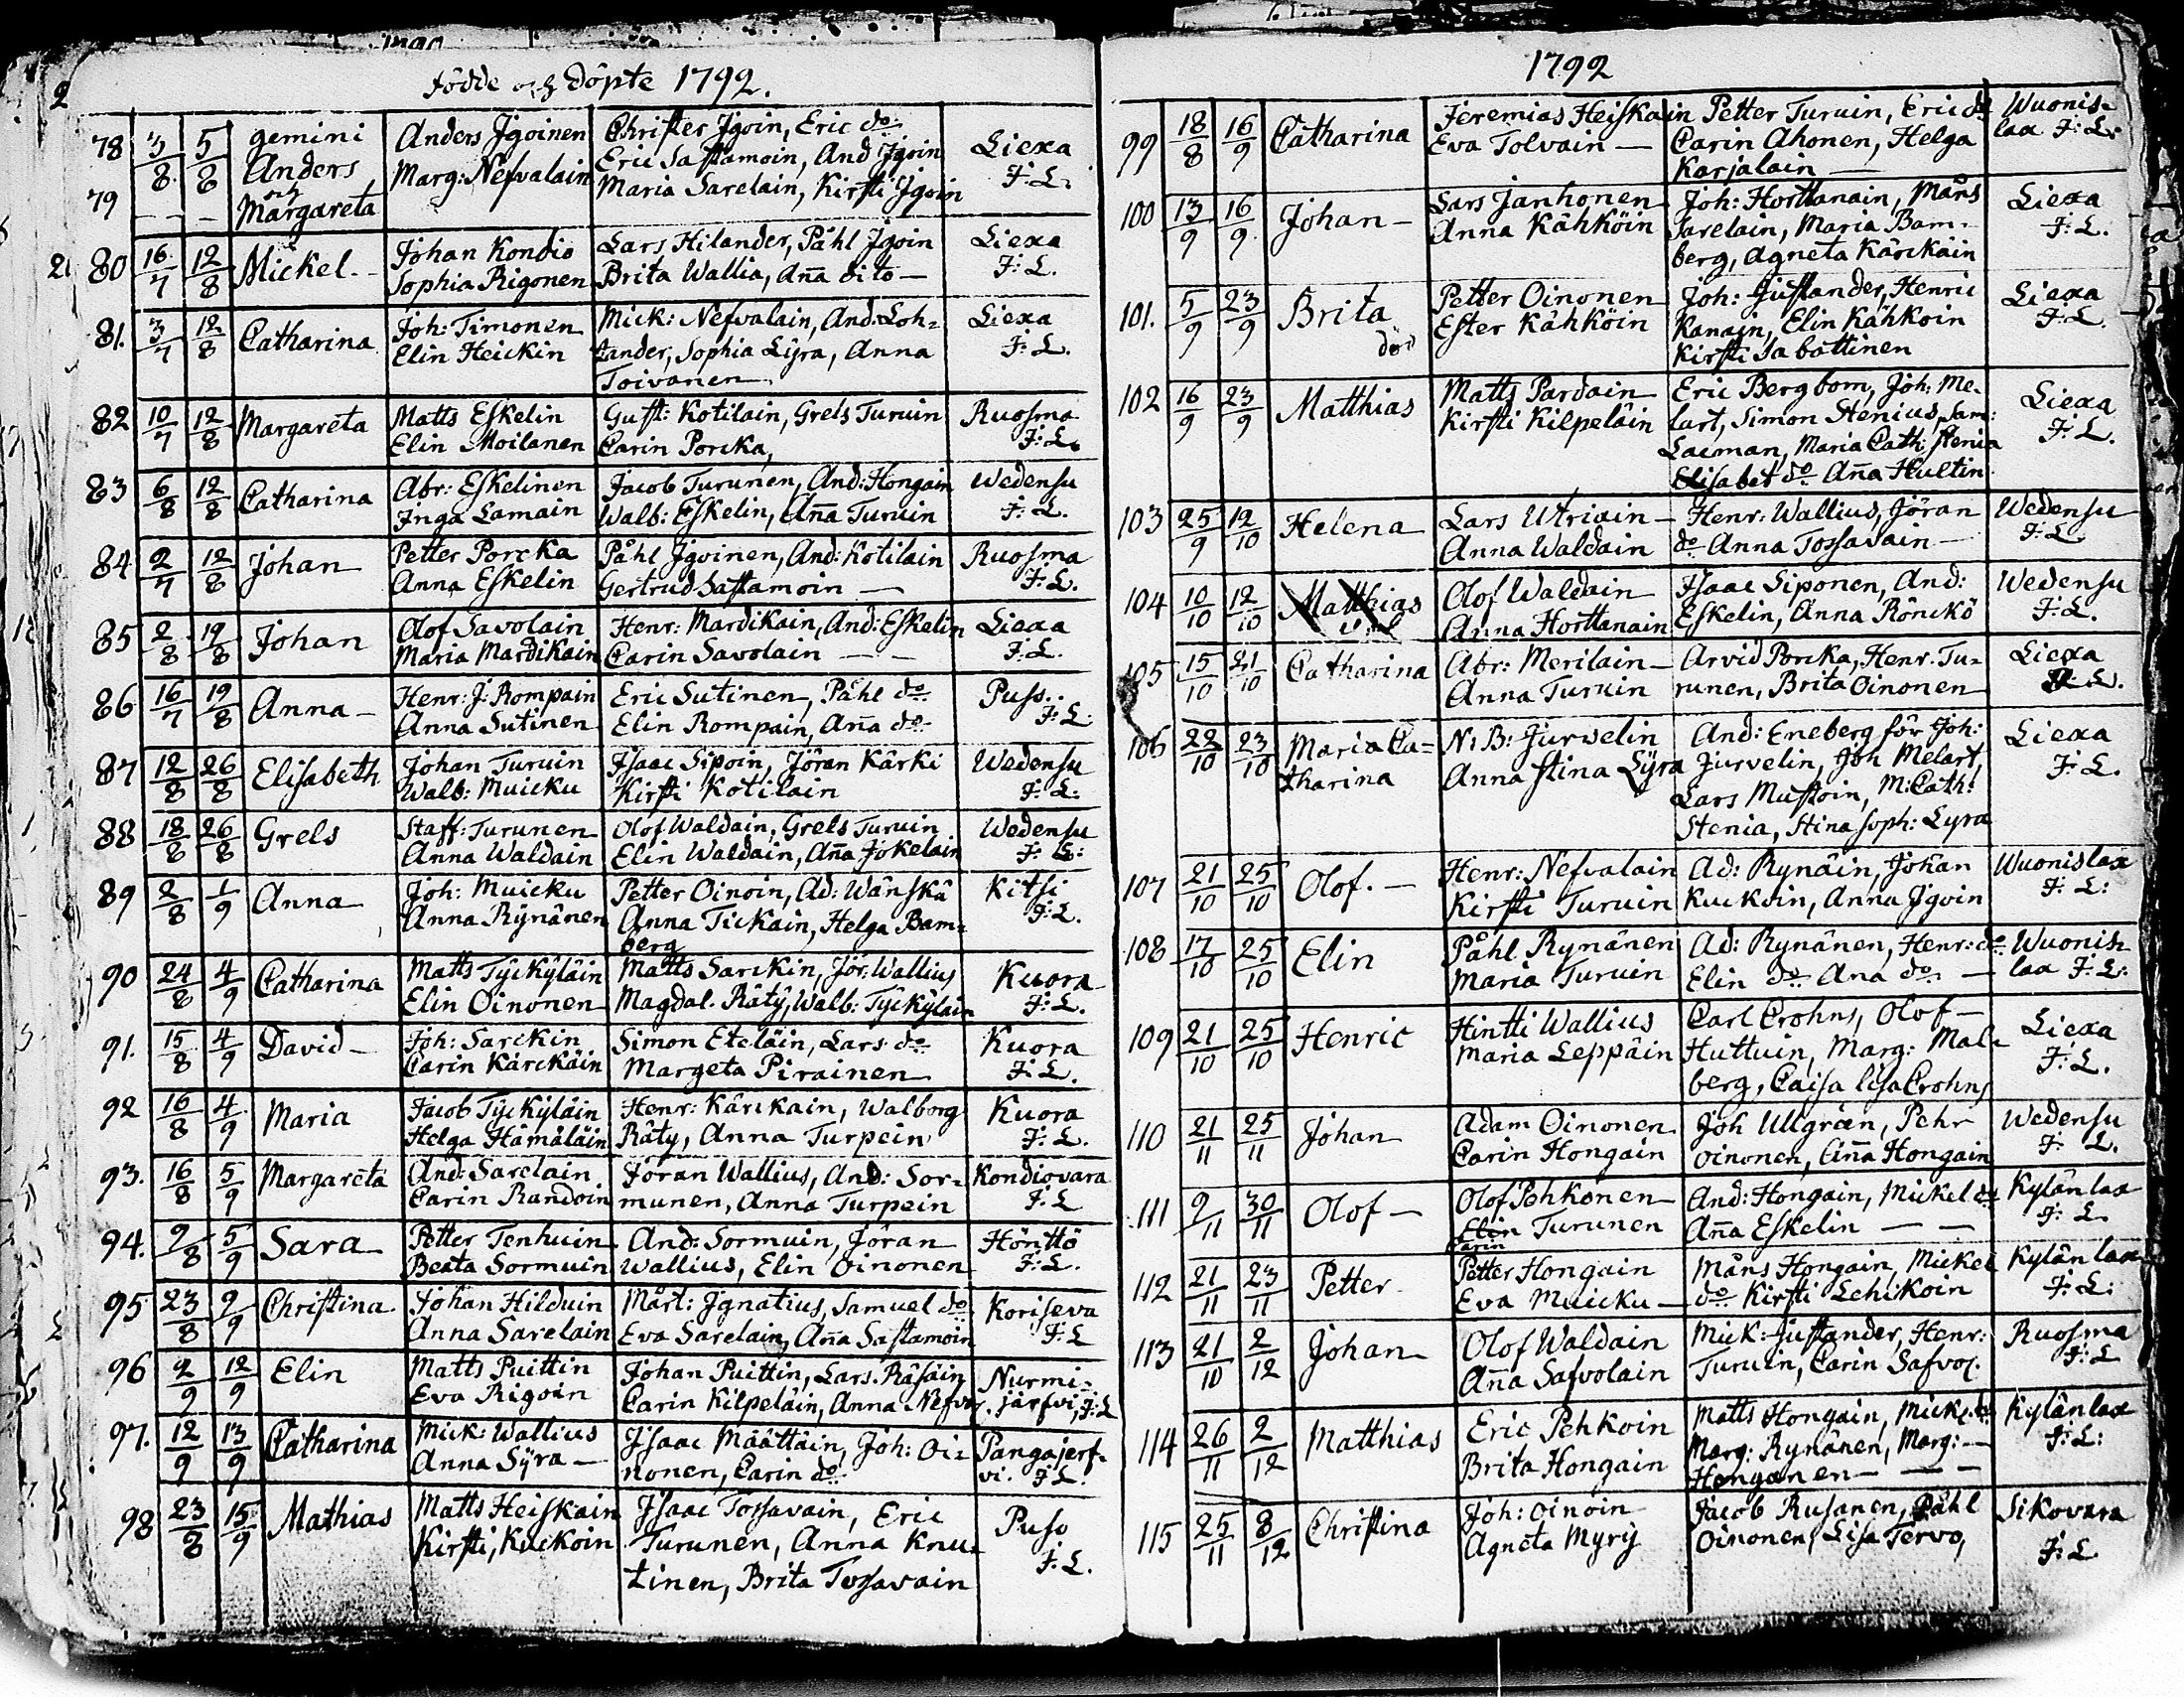 födde och döpte 1792.
78 3/8 5/8 gemini Anders Igoinen Christer Igoin, Eric do Liexa
79 — — Anders och Marg: Nefvalain Eric Sastamoin, And Igoin F: L.
Margareta Maria Sarelain, Kirsti Igoin
80 16/7 12/8 Mickel. - Johan Kondio Lars Hilander, Påhl Igoin Liexa
Sophia Rigonen Brita Wallia, Ana dito — F: L.
81. 3/7 12/8 Catharina Joh: Timonen Mick: Nefvalain, And: Loh- Liexa
Elin Heickin tander, Sophia Lyra, Anna F: L.
Toivanen
82 10/7 12/8 Margareta Matts Eskelin Gust: Kotilain, Grels Turuin Ruosma
Elin Moilanen Carin Porcka, F: L.
83 6/8 12/8 Catharina Abr: Eskelinen Jacob Turunen, And: Hongain Wedensu
Inga Lamain Walb: Eskelin, Aña Turuin F: L.
84 2/7 12/8 Johan Petter Porcka Påhl Igoinen, And: Kotilain Ruosma
Anna Eskelin Gertrud Sastamoin — F: L.
85 2/8 19/8 Johan Olof Savolain Henr: Mardikain, And: Eskelin Liexa
Maria Mardikain Carin Savolain — — F: L.
86 16/7 19/8 Anna - Henr: J. Rompain Eric Sutinen, Påhl do Puso.
Anna Sutinen Elin Rompain, Aña do F: L.
87 12/8 26/8 Elisabeth Johan Turuin Isaac Sipoin, Jöran Kärki Wedensu
Walb: Muicku Kirsti Kotilain F: L.
88 18/8 26/8 Grels Staff: Turunen Olof Waldain, Grels Turuin Wedensu
Anna Waldain Elin Waldain, Aña Jokelain F: L:
89 2/8 1/9 Anna Joh: Muicku Petter Oinoin, Ad: Wänskä Kitsi
Anna Rynänen Anna Tickain, Helga Bam- F: L.
berg
90 24/8 4/9 Catharina Matts Tyckyläin Matts Sarckin, Jör. Wallius Kuora
Elin Oinonen Magdal. Räty, Walb: Tyckyläin F: L.
91. 15/8 4/9 David - Joh: Sarckin Simon Eteläin, Lars do Kuora
Carin Kärckäin Margeta Pirainen F: L.
92 16/8 4/9 Maria Jacob Tyckyläin Henr: Kärckain, Walborg Kuora
Helga Hämäläin Räty, Anna Turpein F: L.
93. 16/8 5/9 Margareta And: Sarelain Jöran Wallius, And: Sor- Kondiovara
Carin Randoin munen, Anna Turpein F: L
94. 9/8 5/9 Sara Petter Tenhuin And: Sormuin, Jöran Hönttö
Beata Sormuin Wallius, Elin Oinonen F: L.
95 23/8 9/9 Christina Johan Hilduin Mårt: Ignatius, Samuel do Koriseva
Anna Sarelain Eva Sarelain, Aña Sastamoin F: L
96 2/9 12/9 Elin Matts Puittin Johan Puittin, Lars. Räsäin Nurmi-
Eva Rigoin Carin Kilpeläin, Anna Nefva. järfvi, F: L
97. 12/9 13/9 Catharina Mick: Wallius Isaac Määttäin, Joh: Oi- Pangajerf-
Anna Syra — nonen, Carin do vi. F: L.
98 23/8 15/9 Mathias Matts Heiskain Isaac Tossavain, Eric Puso
Kirsti, Kuckoin Turunen, Anna Knu- F: L.
tinen, Brita Tossavain
1792
99 18/8 16/9 Catharina Jeremias Heiskain Petter Turuin, Eric do Wuonis-
Eva Tolvain — Carin Ahonen, Helga lax F: L:
Karjalain —
100 13/9 16/9 Johan - Lars Janhonen Joh: Horttanain, Måns Liexa
Anna Kähköin Sarelain, Maria Bam- F: L.
berg, Agneta Kärckäin
101. 5/9 23/9 Brita Petter Oinonen Joh: Justander, Henric Liexa
död Ester Kähköin Kanain, Elin Kähkoin F: L.
Kirsti Sabattinen
102 16/9 23/9 Matthias Matts Pardain Eric Bergbom, Joh: Me- Liexa
Kirsti Kilpeläin lart, Simon Stenius, Sam: F: L.
Laiman, Maria Cath: Stenia
Elisabet do Aña Hultin
103 25/9 12/10 Helena Lars Utriain — Henr: Wallius, Jöran Wedensu
Anna Waldain do Anna Tossavain — F: L.
104 10/10 12/10 Matthias Olof Waldain Isaac Siponen, And: Wedensu
Anna Horttanain Eskelin, Anna Rönckö F: L.
105 15/10 21/10 Catharina Abr: Merilain — Arvid Porcka, Henr. Tu- Liexa
Anna Turuin runen, Brita Oinonen F: L.
106 22/10 23/10 Maria Ca- N: B: Jurvelin And: Eneberg för Joh: Liexa
tharina Anna Stina Lyra Jurvelin, Joh Melart, F: L.
Lars Mustoin, M: Cath:
Stenia, Stina Soph: Lyra
107 21/10 25/10 Olof. — Henr: Nefvalain Ad: Rynäin, Johan Wuonislax
Kirsti Turuin Kuckoin, Anna Igoin F: L:
108 17/10 25/10 Elin Påhl Rynänen Ad: Rynänen, Henr: do Wuonis-
Maria Turuin Elin do Ana do — lax F: L:
109 21/10 25/10 Henric Hintti Wallius Carl Crohns, Olof — Liexa
Maria Leppäin Huttuin, Marg: Mal- F: L.
berg, Caisa Lisa Crohns
110 21/11 25/11 Johan Adam Oinonen Joh Ullgrän, Pehr Wedensu
Carin Hongain Oinonen, Aña Hongain F: L.
111 9/11 30/11 Olof — Olof Pehkonen And: Hongain, Mickel do Kylänlax
Elin Turunen Aña Eskelin — — F: L.
Carin
112 21/11 23/11 Petter Petter Hongain Måns Hongain, Mickel Kylänlax
Eva Muicku — do Kirsti Lehikoin F: L:
113 21/10 2/12 Johan Olof Waldain Mick: Justander, Henr: Ruosma
Aña Safvolain Turuin, Carin Safvol. F: L
114 26/11 2/12 Matthias Eric Pehkoin Matts Hongain, Mick: do Kylänlax
Brita Hongain Marg: Rynänen, Marg: — F: L:
Honganen — —
115 25/11 8/12 Christina Joh: Oinoin Jacob Rusanen, Påhl Sikovara
Agneta Myry Oinonen, Lisa Tervo, F: L.